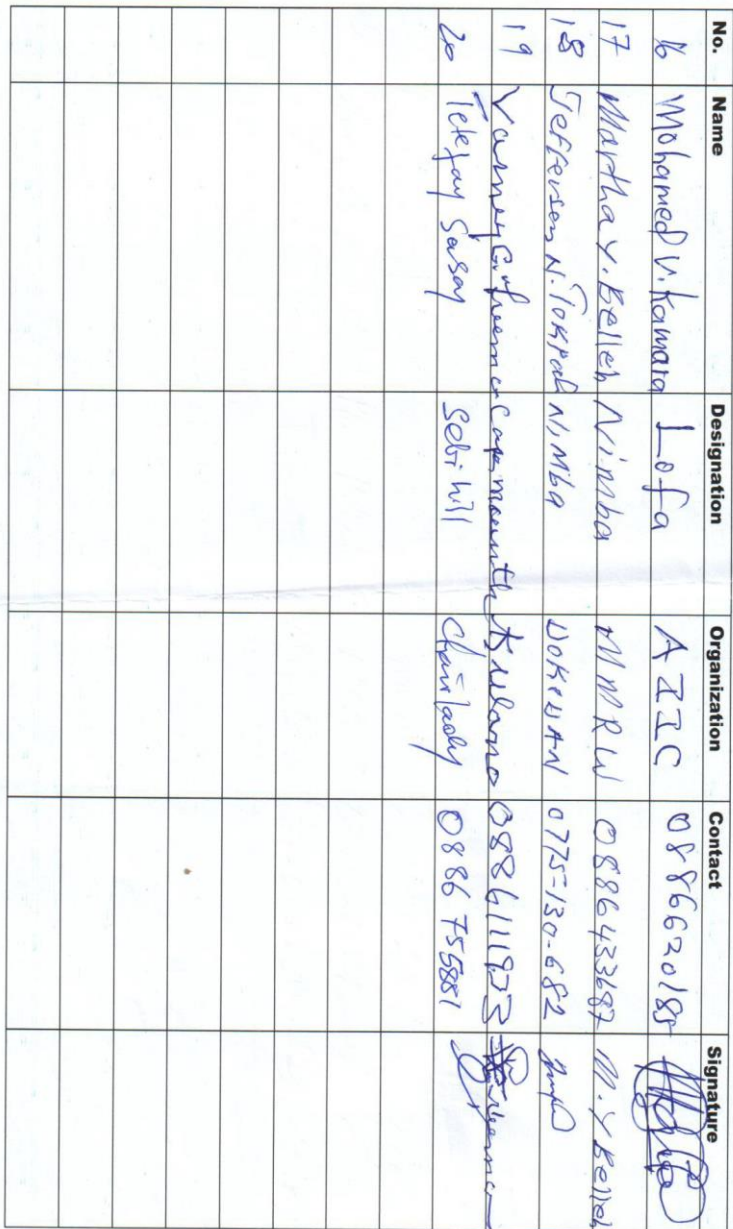 No. Name Designation Organization Contact Signature
16 Mohamed V. Kamara Lofa AIIC 0886620185
17 Martha Y. Belleh Nimba MMRW 0886433687 M.Y Belleh
18 Jefferson N. Tokpah NiMba 0775-130-682
19 Varney G. freeman Cape mounth 0886111923
20 Sebi hill Chairlady 0886 755881